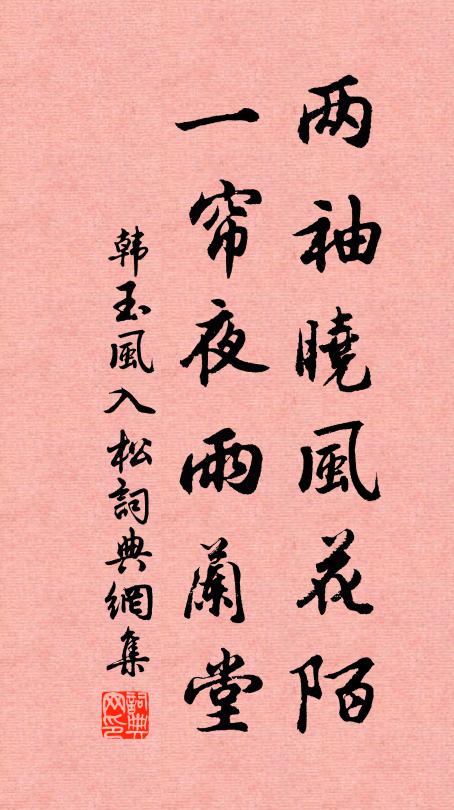 两袖曉風花陌
一帘夜雨蘭堂
韩玉風入松詞典網集
詞典网印